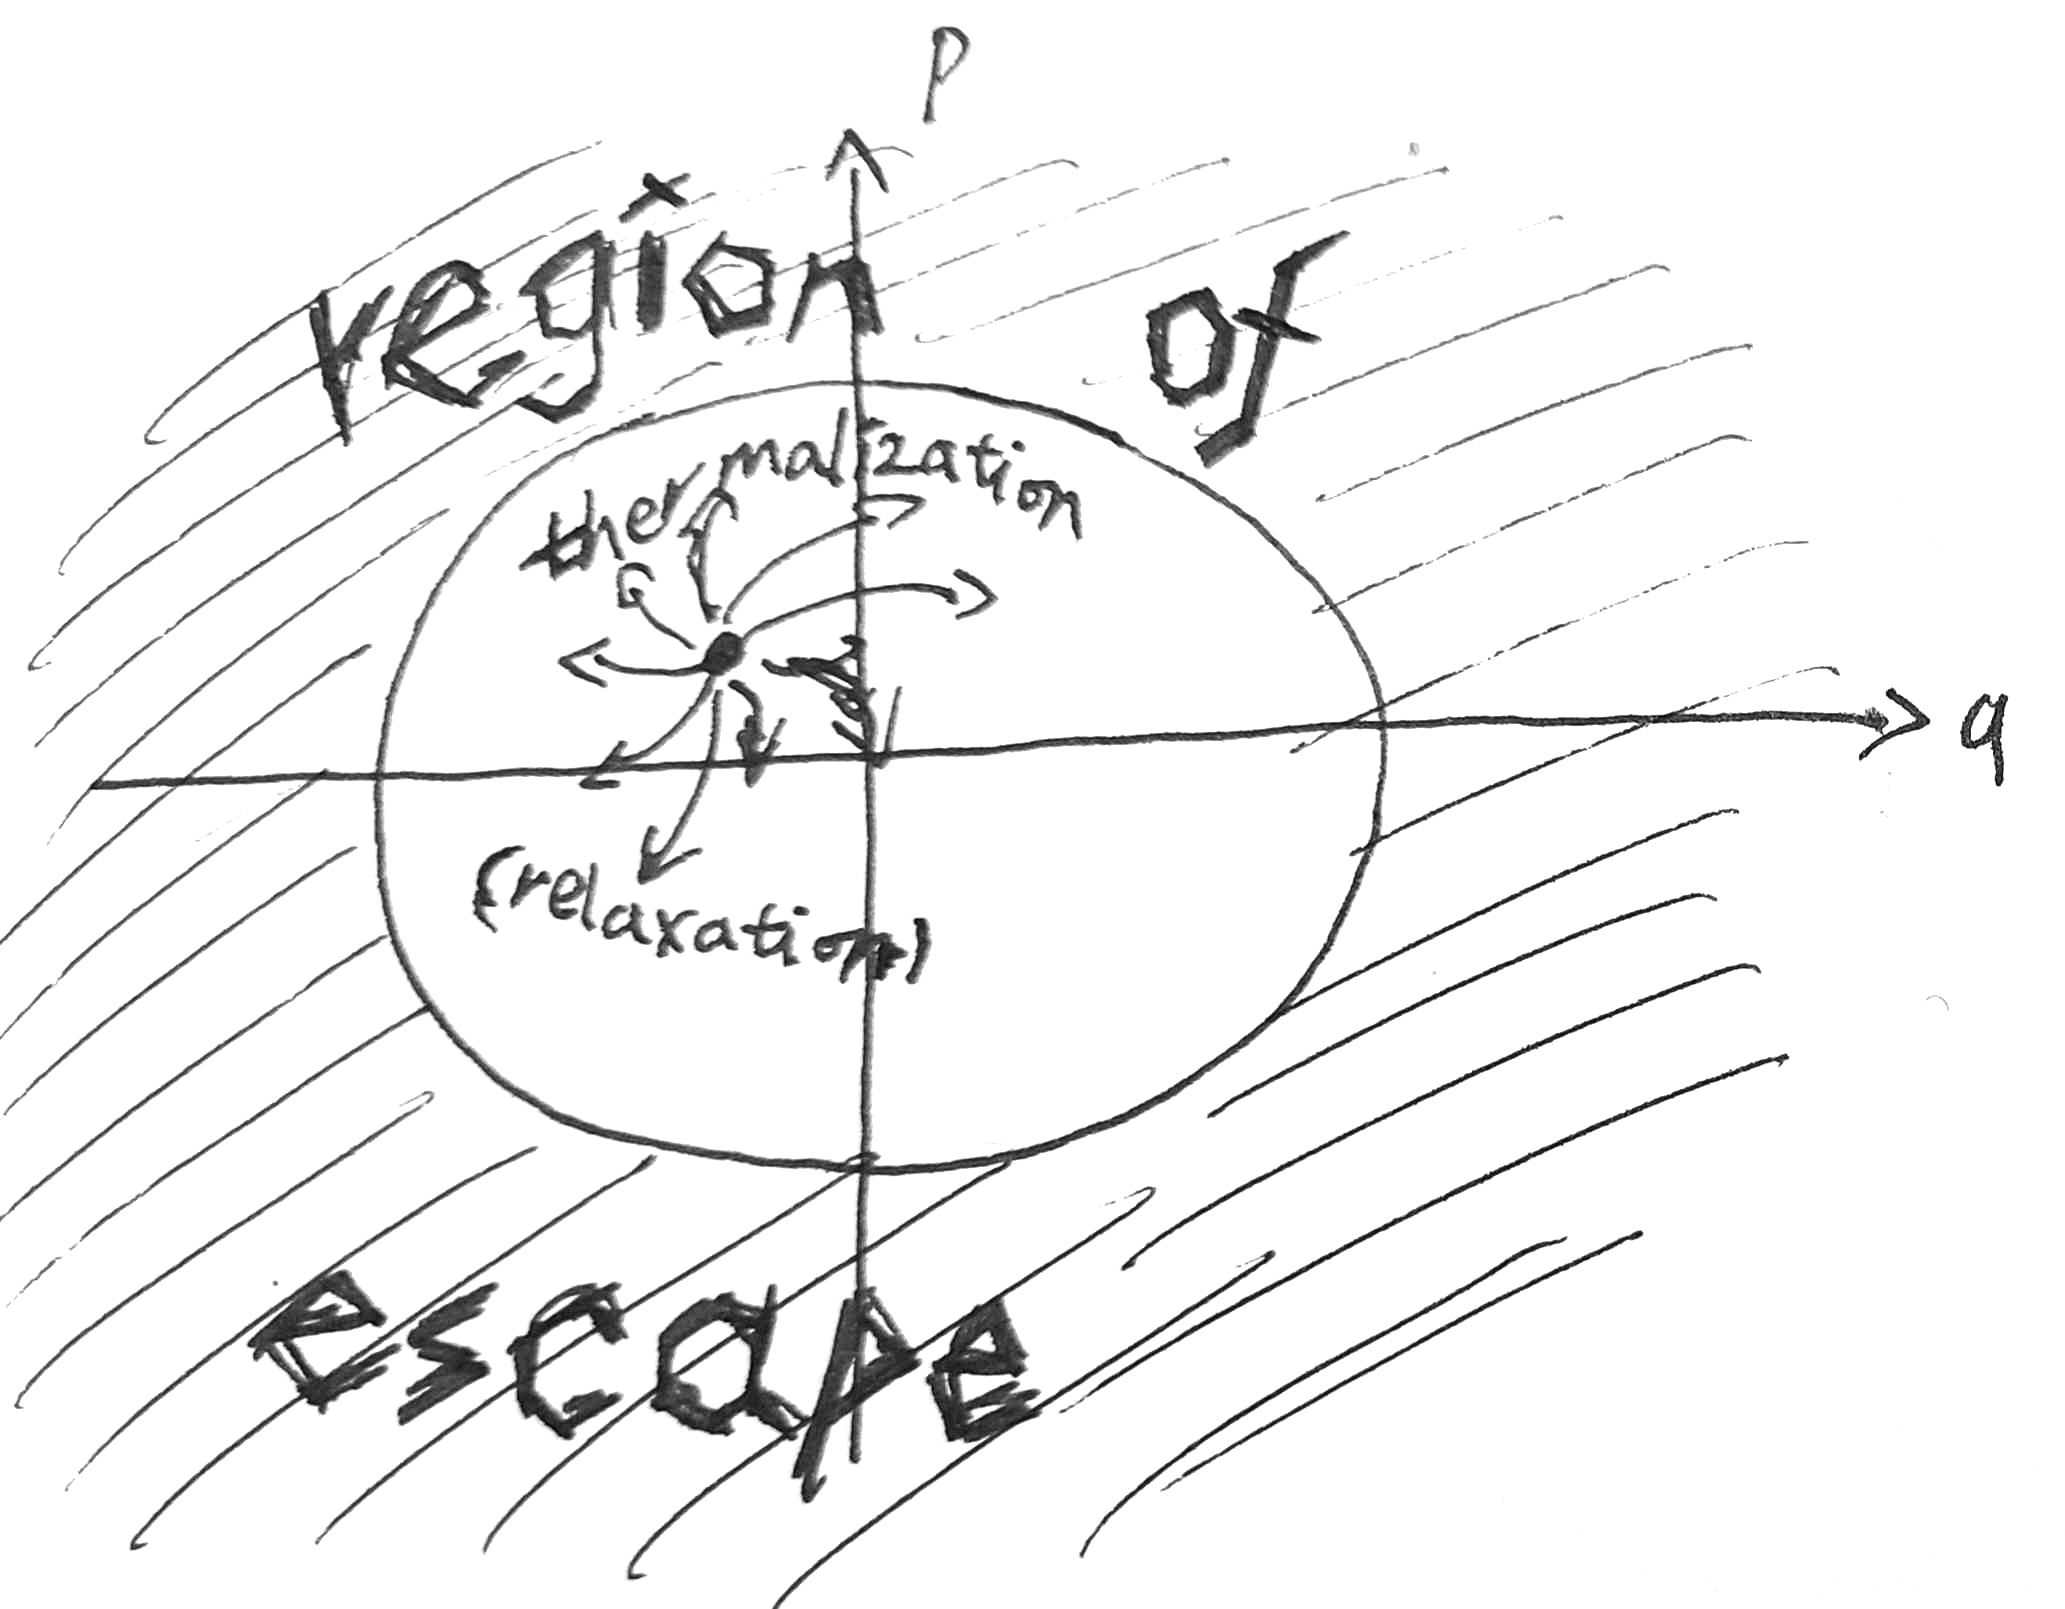 P
region of
thermalization
q
(relaxation)
escape